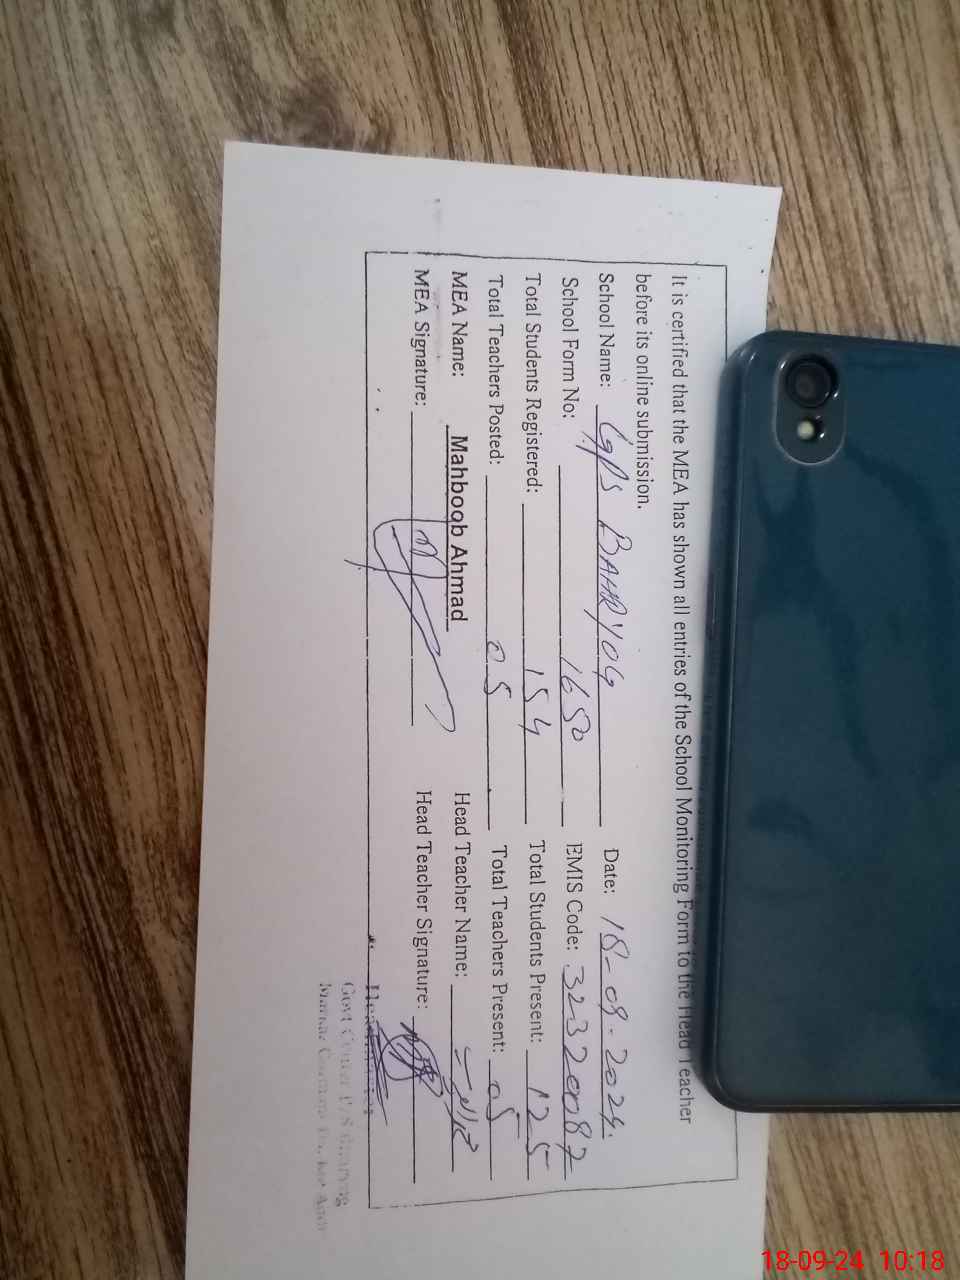 It is certified that the MEA has shown all entries of the School Monitoring Form to the Head Teacher
before its online submission.
School Name: GPS BAHRYOG Date: 18-09-2024.
School Form No: 1650 EMIS Code: 32320087
Total Students Registered: 154 Total Students Present: 125
Total Teachers Posted: 05 Total Teachers Present: 05
MEA Name: Mahboob Ahmad Head Teacher Name:
MEA Signature: Head Teacher Signature:
Govt
18-09-24 10:18